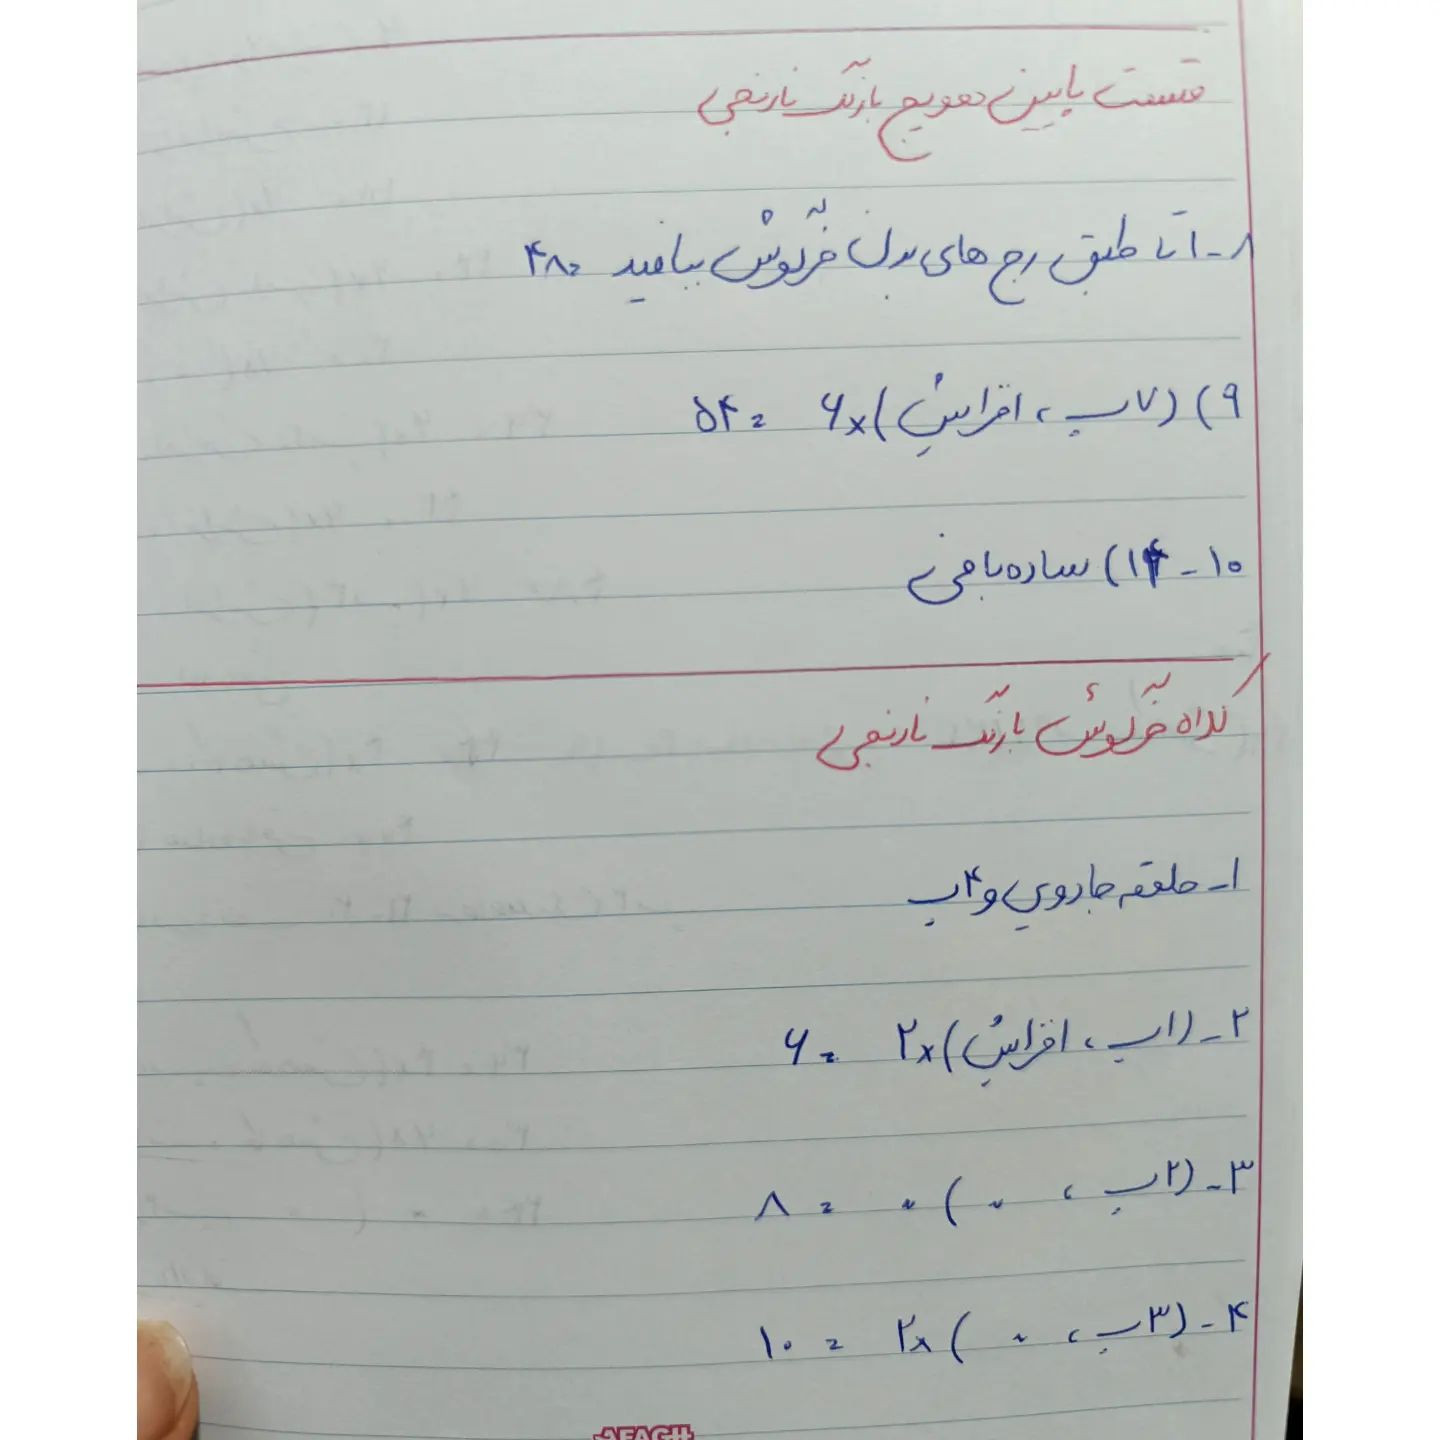 قسمت پایین هویج با رنگ نارنجی
۱-۸ تا طبق رج های بدن خرگوش ببافید =۴۸
۹) (۷پ، افزایش)×۶ =۵۴
۱۰-۱۴) ساده بافی
کلاه خرگوش با رنگ نارنجی
۱- حلقه جادویی و ۴پ
۲- (۱پ، افزایش)×۲ =۶
۳- (۲پ، 〃) 〃 =۸
۴- (۳پ، 〃)×۲ =۱۰
AFAGH